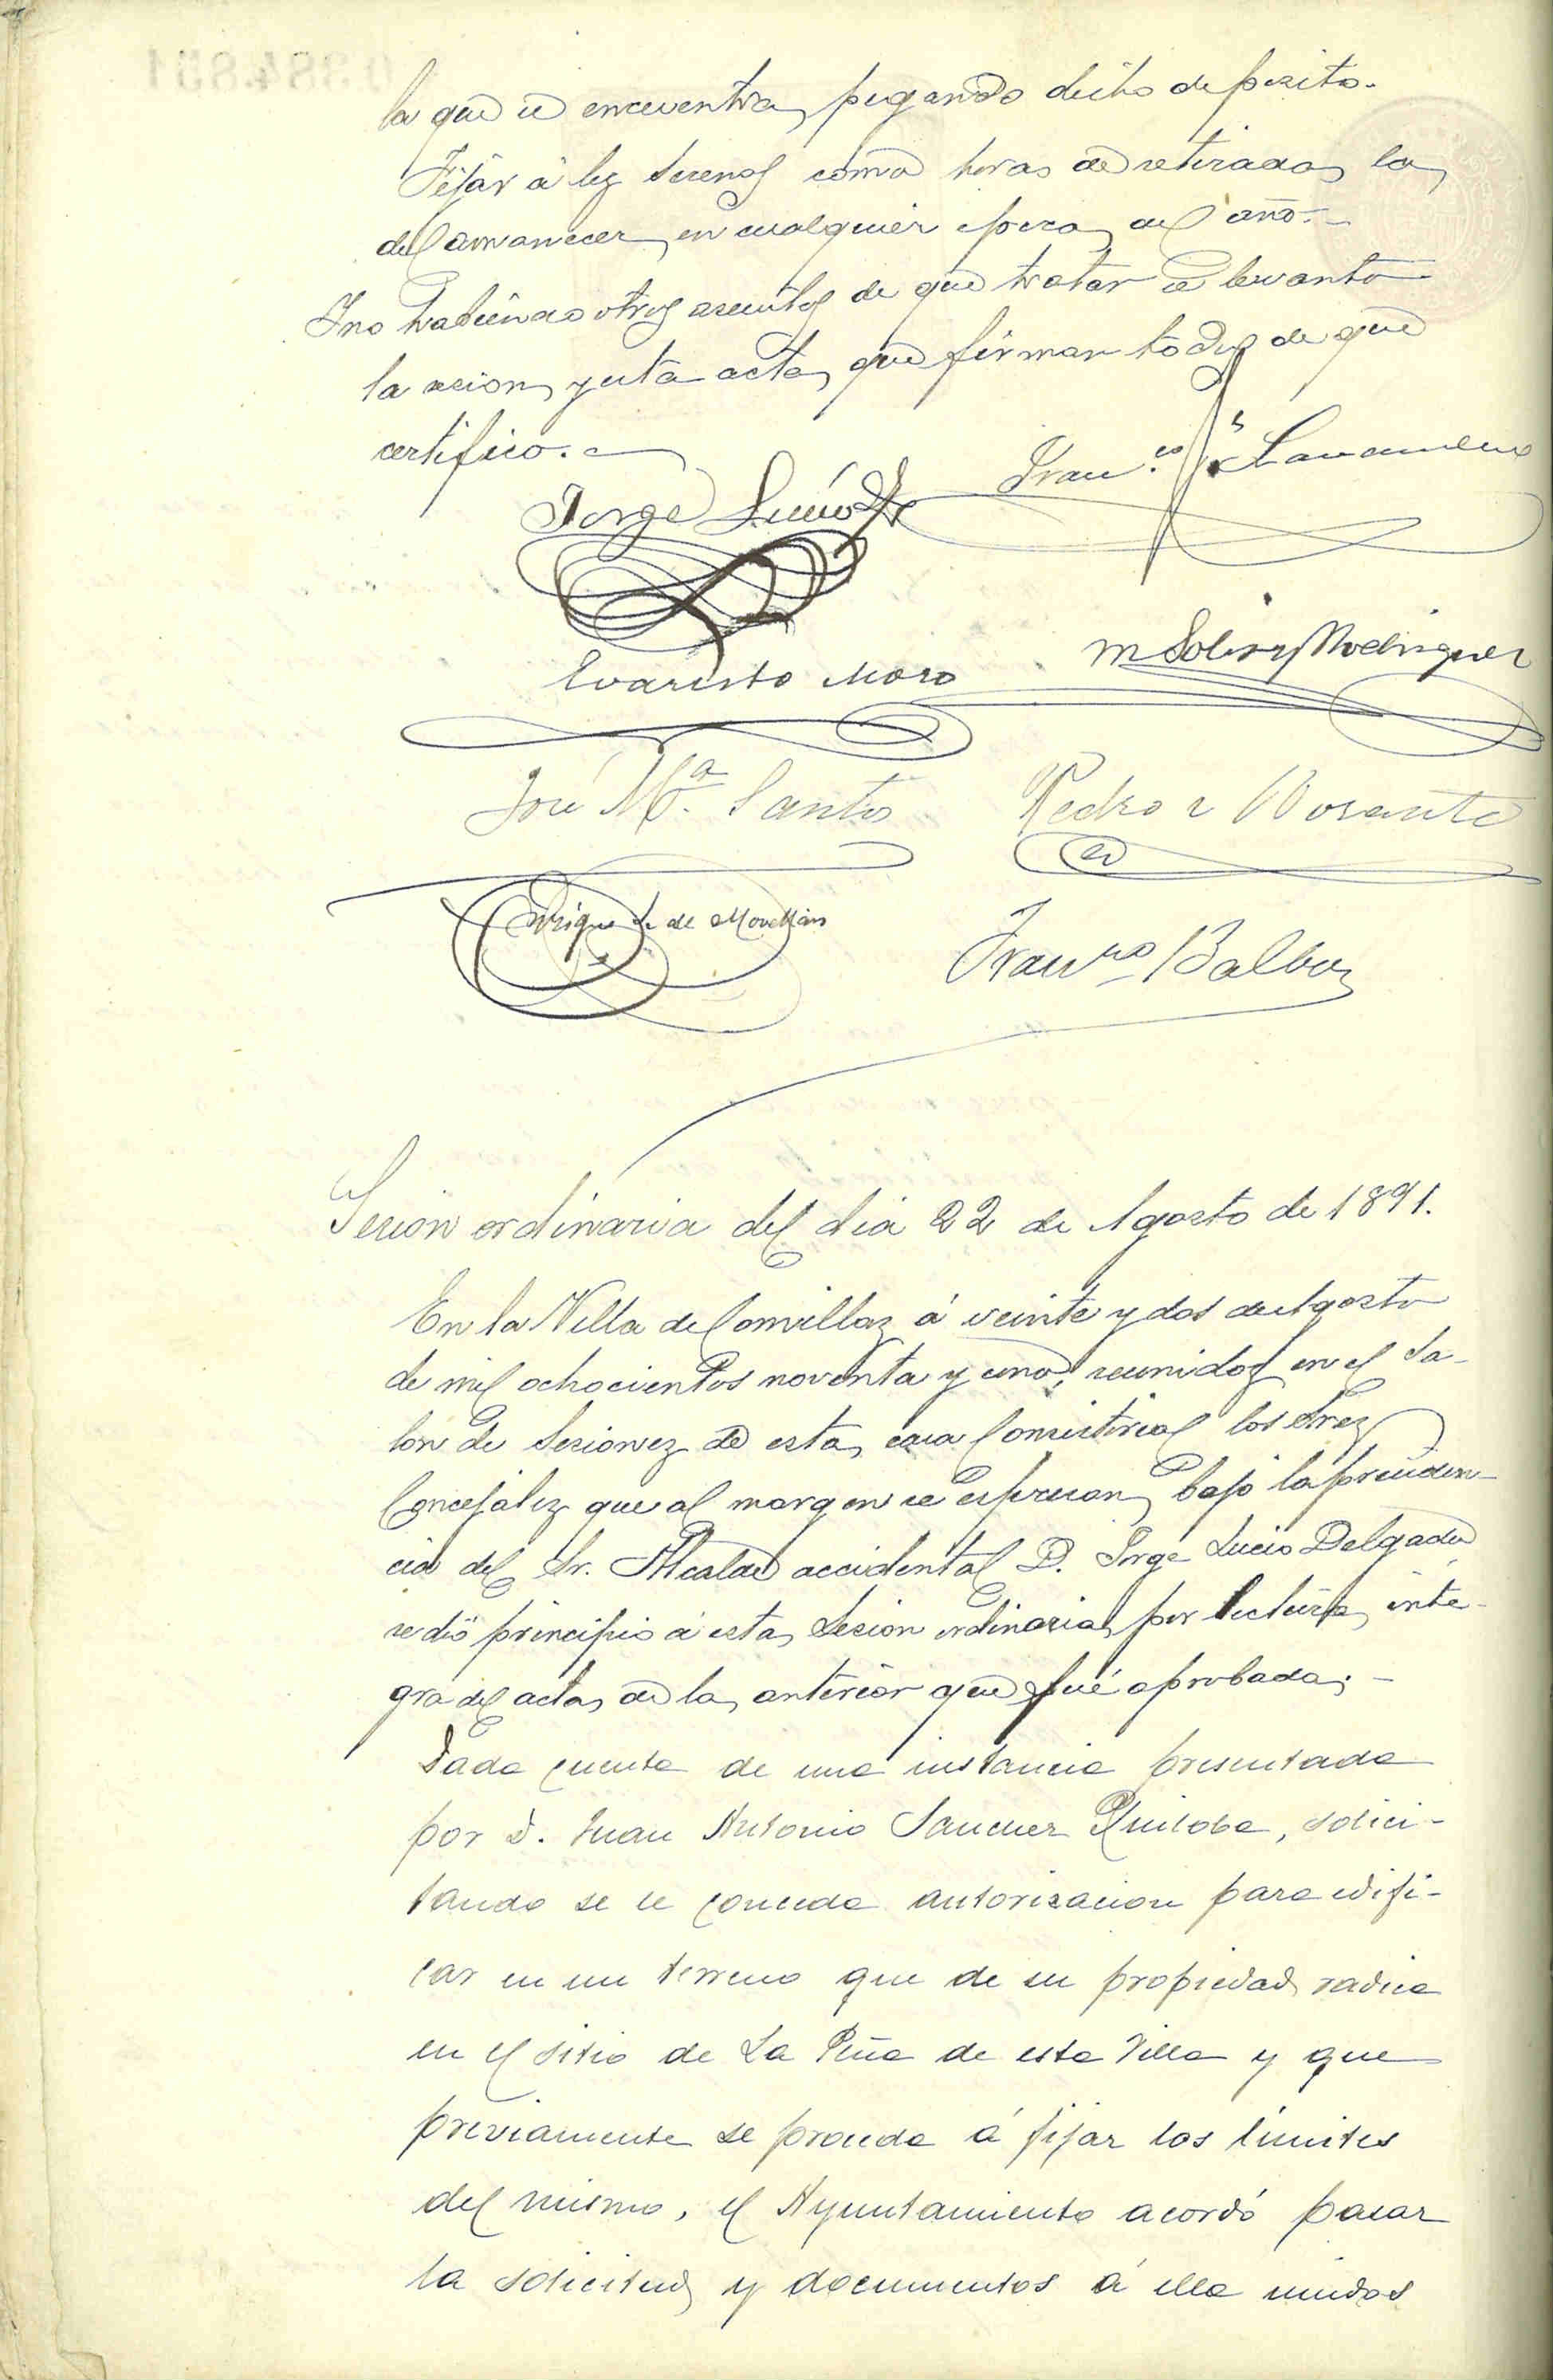 la que se encuentra pegando dicho deposito.
Fijar á los serenos como horas de retirada la
del amanecer en cualquier epoca del año.
Y no habiendo otros asuntos de que tratar se levantó
la sesion y esta acta que firman todos de que
certifico.
Jorge Lucio
Evaristo Moro
M Solis y Rodriguez
José Mª Santos
Pedro
Enrique de Movellán
Franco Balboz
Sesion ordinaria del dia 22 de Agosto de 1891.
En la Villa de Comillas á veinte y dos de Agosto
de mil ochocientos noventa y uno, reunidos en el Sa-
lon de Sesiones de esta casa Consistorial los Sres
Concejales que al margen se espresan bajo la presiden-
cia del Sr. Alcalde accidental D. Jorge Lucio Delgado
se dió principio á esta Sesion ordinaria por lectura inte-
gra del acta de la anterior que fué aprobada.
Dada cuenta de una instancia presentada
por D. Juan Antonio Sanchez Quiloba, solici-
tando se le conceda autorizacion para edifi-
car en un terreno que de su propiedad radica
en el sitio de La Peña de esta Villa y que
previamente se proceda á fijar los limites
del mismo, el Ayuntamiento acordó pasar
la solicitud y documentos á ella unidos